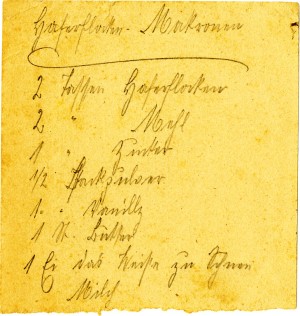 Haferflocken-Makronen
2 Tassen Haferflocken
2 " Mehl
1 " Zucker
1/2 Backpulver
1 " Vanille
1 St. Butter
1 Ei das Weiße zu Schnee
Milch